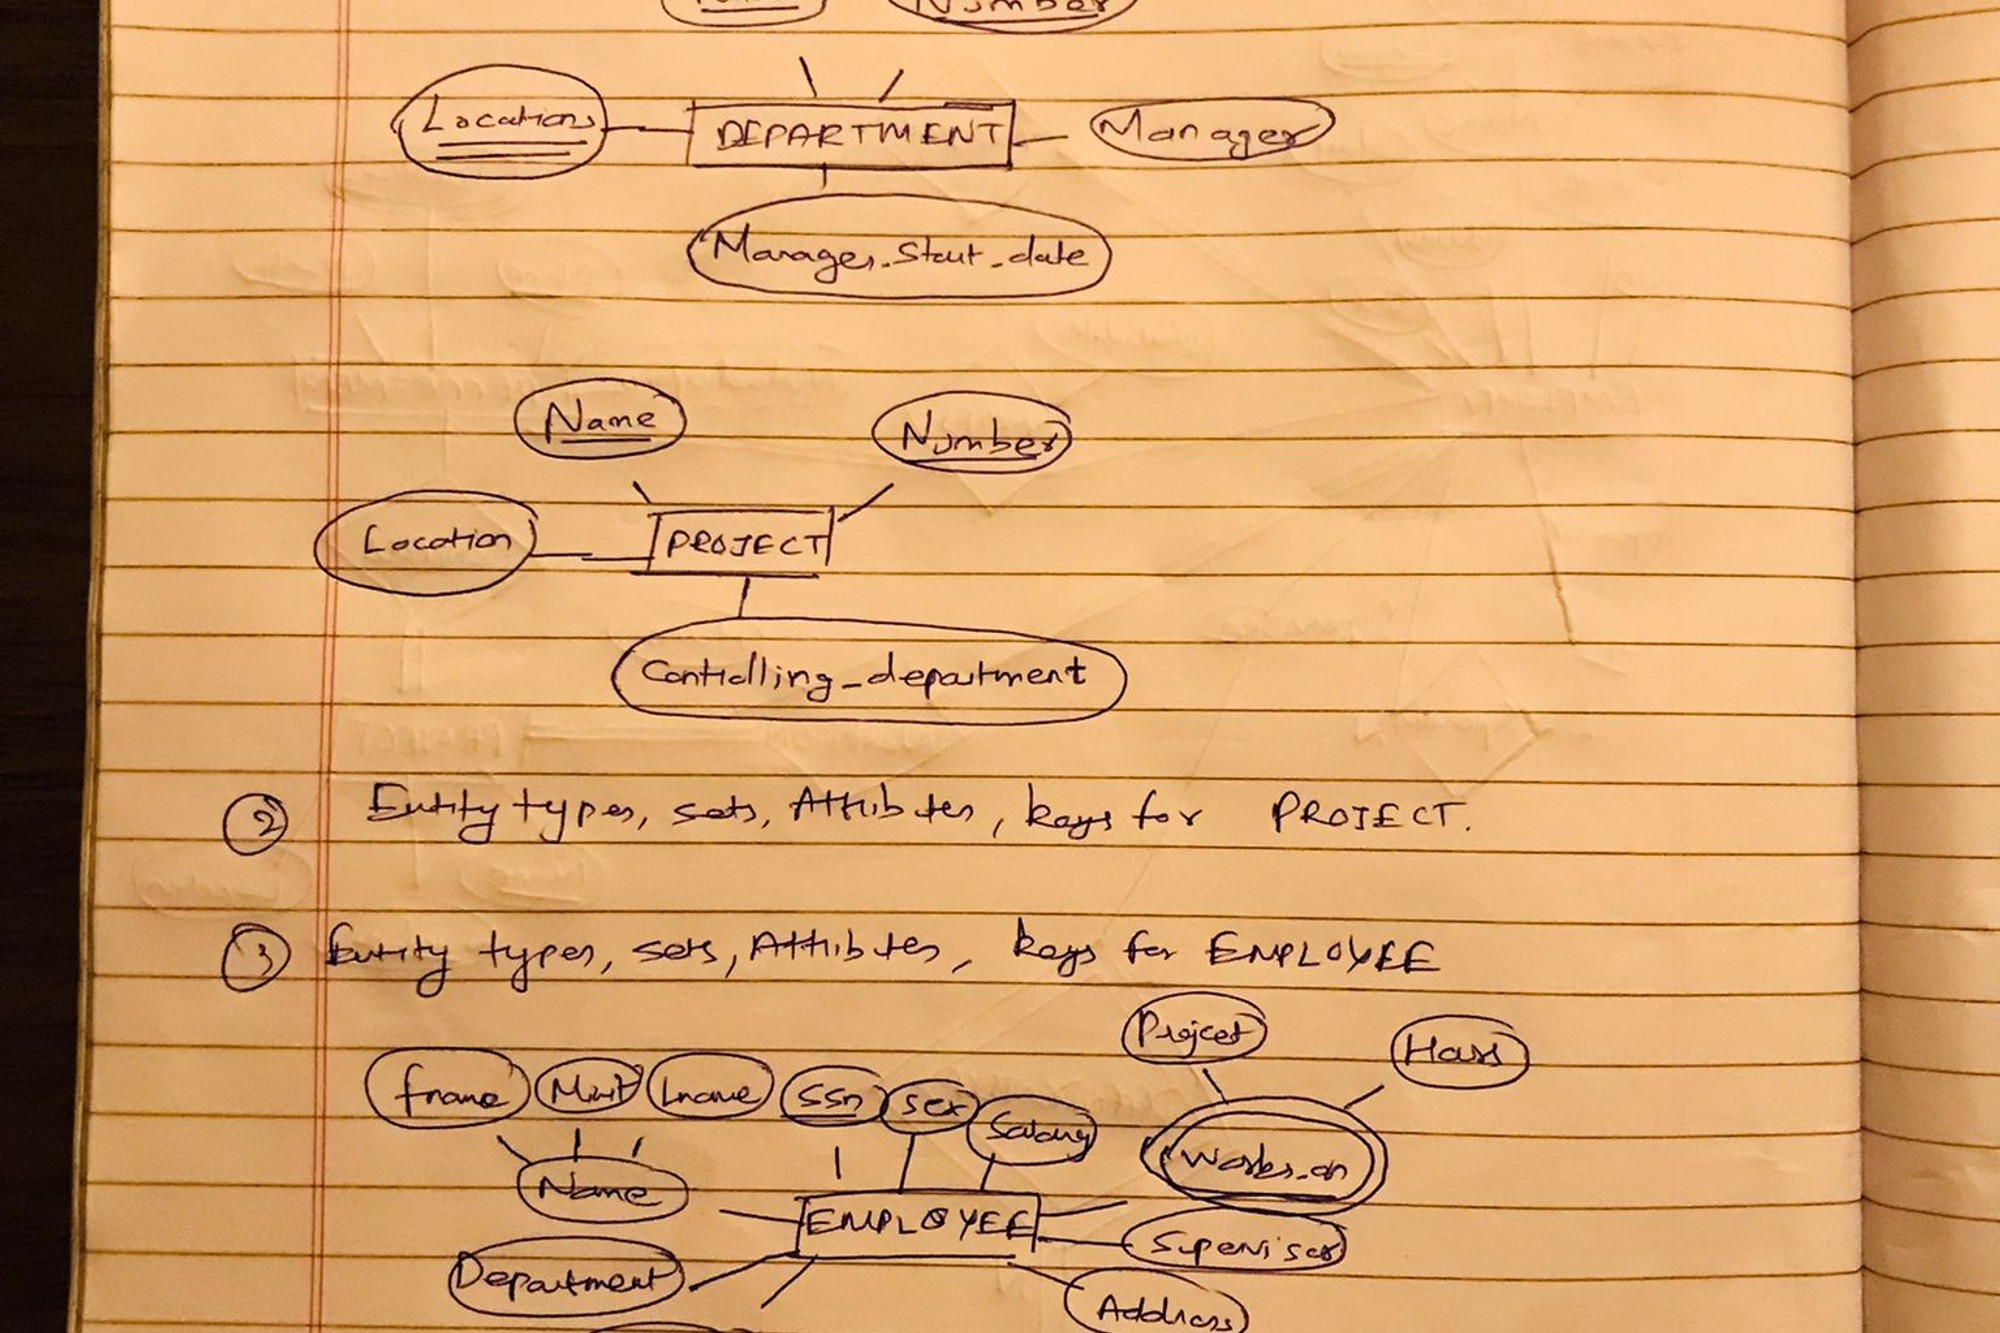 Number
Locations
DEPARTMENT
Manager
Manager_Start_date
Name
Number
Location
PROJECT
Controlling_department
② Entity types, sets, Attributes, keys for PROJECT.
③ Entity types, sets, Attributes, keys for EMPLOYEE
Project
Hours
fname Minit Lname SSn sex
Salary
Works_on
Name
EMPLOYEE
Supervisor
Department
Address